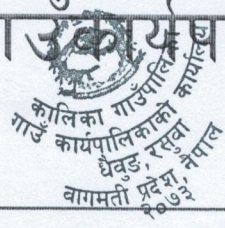 गाउँकार्यप
कालिका गाउँपालिका
गाउँ कार्यपालिकाको कार्यालय
धैवुङ, रसुवा
बागमती प्रदेश, नेपाल
२०७३